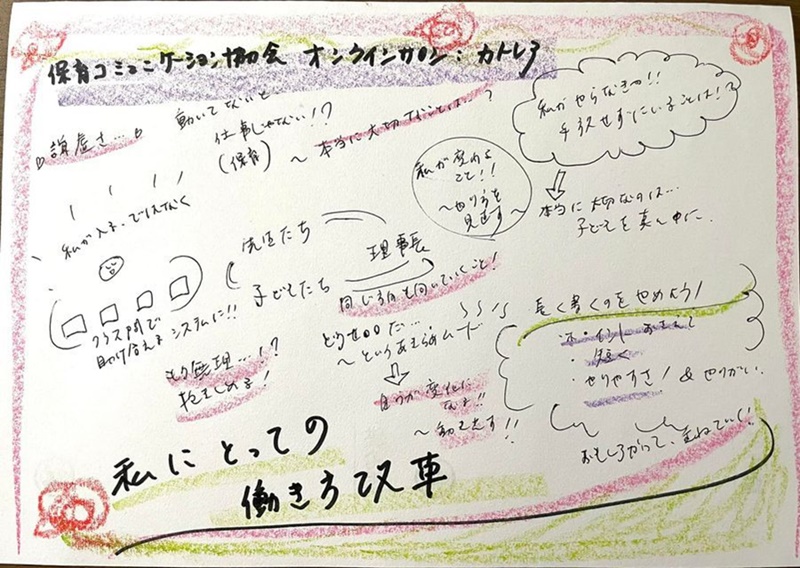 保育コミュニケーション協会 オンラインサロン：カトレア
謙虚さ…
動いてないと…
仕事じゃない!?
(保育)
〜本当に大切なことは…?
私がやらなきゃ!!
手放せずにいることは!?
私が変わる
こと!!
〜やり方を
見直す〜
本当に大切なのは…
子どもを真ん中に
私が入る、ではなく
クラス間で
助け合えるシステムに!!
先生たち
理事長
子どもたち
同じ方向を向いていくこと!
もう無理…!?
抱きしめる!
どうせ〇〇だ…
〜というあきらめムード
自らが変化に
なる!!
〜動き出す!!
長く書くのをやめよう!
・ポイントおさえて
・短く
・やりやすさ! & やりがい
おもしろがって、重ねていく!
私にとっての
働き方改革